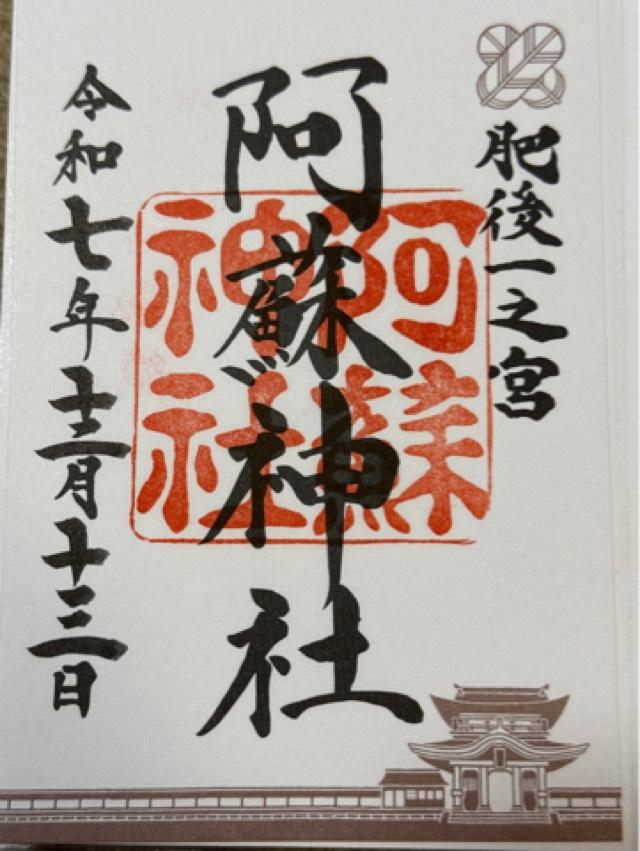 肥後一之宮
阿蘇神社
阿蘇神社
令和七年十二月十三日